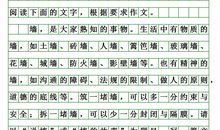 阅读下面的文字，根据要求作文。
墙，是大家熟知的事物。生活中有物质的
墙，如土墙、砖墙、人墙、篱笆墙、玻璃墙、
花墙、城墙、防火墙、影壁墙等；也有精神的
墙，如沟通的障碍、法规的限制、做人的原则，
道德的底线等。筑一堵墙，可以多一分约束与
安全；拆一堵墙，可以多一分自由与